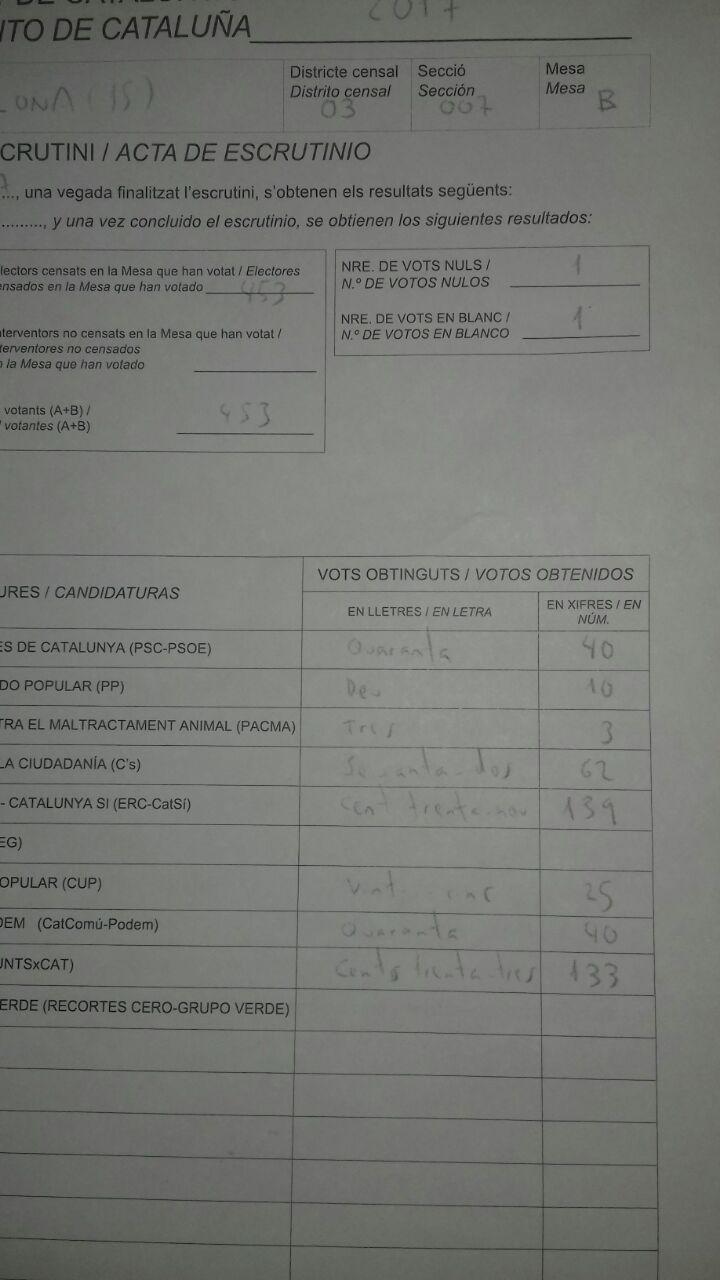 2017
NTO DE CATALUÑA
LONA (15)
Districte censal
Distrito censal
03
Secció
Sección
007
Mesa
Mesa
B
CRUTINI / ACTA DE ESCRUTINIO
..., una vegada finalitzat l'escrutini, s'obtenen els resultats següents:
........., y una vez concluido el escrutinio, se obtienen los siguientes resultados:
lectors censats en la Mesa que han votat / Electores
ensados en la Mesa que han votado 453
nterventors no censats en la Mesa que han votat /
terventores no censados
n la Mesa que han votado
votants (A+B) /
votantes (A+B) 453
NRE. DE VOTS NULS /
N.º DE VOTOS NULOS 1
NRE. DE VOTS EN BLANC /
N.º DE VOTOS EN BLANCO 1
URES / CANDIDATURAS
VOTS OBTINGUTS / VOTOS OBTENIDOS
EN LLETRES / EN LETRA
EN XIFRES / EN
NÚM.
ES DE CATALUNYA (PSC-PSOE) Quaranta 40
DO POPULAR (PP) Deu 10
TRA EL MALTRACTAMENT ANIMAL (PACMA) Tres 3
LA CIUDADANÍA (C's) 62
- CATALUNYA SI (ERC-CatSí) Cent trenta-nou 139
EG)
OPULAR (CUP) 25
DEM (CatComú-Podem) Quaranta 40
UNTSxCAT) Cents trenta-tres 133
ERDE (RECORTES CERO-GRUPO VERDE)